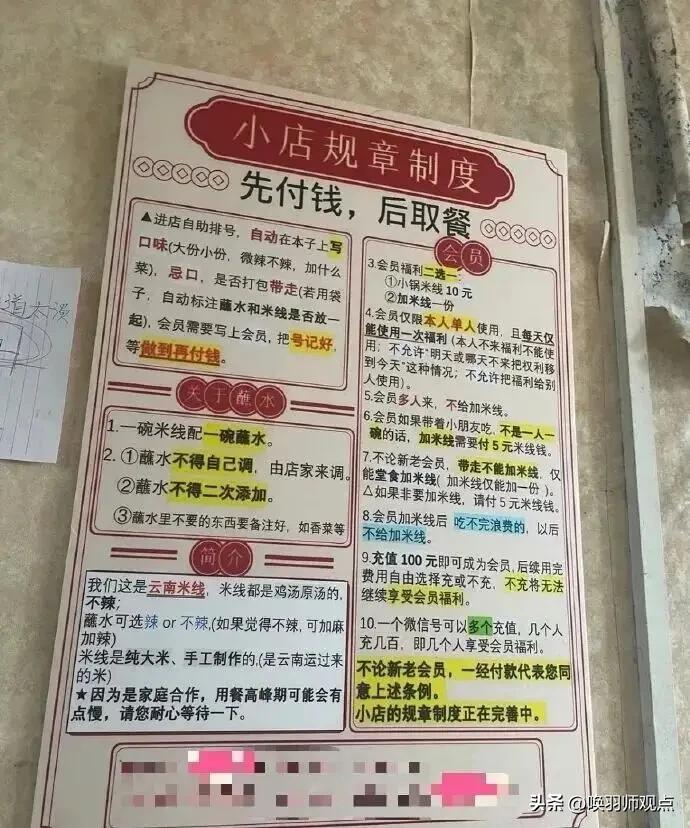 小店规章制度
先付钱，后取餐
▲进店自助排号，自动在本子上写
口味(大份小份，微辣不辣，加什么
菜)，忌口，是否打包带走(若用袋
子，自动标注蘸水和米线是否放一
起)，会员需要写上会员，把号记好，
等做到再付钱。
关于蘸水
1.一碗米线配一碗蘸水。
2. ①蘸水不得自己调，由店家来调。
②蘸水不得二次添加。
③蘸水里不要的东西要备注好，如香菜等
简介
我们这是云南米线，米线都是鸡汤原汤的，
不辣；
蘸水可选辣 or 不辣,(如果觉得不辣,可加麻
加辣)
米线是纯大米、手工制作的,(是云南运过来
的米)
★因为是家庭合作，用餐高峰期可能会有
点慢，请您耐心等待一下。
会员
3.会员福利二选一：
①小锅米线 10 元
②加米线一份
4.会员仅限本人单人使用，且每天仅
能使用一次福利(本人不来福利不能使
用；不允许"明天或哪天不来把权利移
到今天"这种情况；不允许把福利给别
人使用)。
5.会员多人来，不给加米线。
6.会员如果带着小朋友吃，不是一人一
碗的话，加米线需要付 5 元米线钱。
7.不论新老会员，带走不能加米线，仅
能堂食加米线( 加米线仅能加一份 )。
△如果非要加米线，请付 5 元米线钱。
8.会员加米线后 吃不完浪费的，以后
不给加米线。
9.充值 100 元即可成为会员,后续用完
费用自由选择充或不充，不充将无法
继续享受会员福利。
10.一个微信号可以多个充值，几个人
充几百，即几个人享受会员福利。
不论新老会员，一经付款代表您同
意上述条例。
小店的规章制度正在完善中。
道太漠
头条 @唤羽师观点